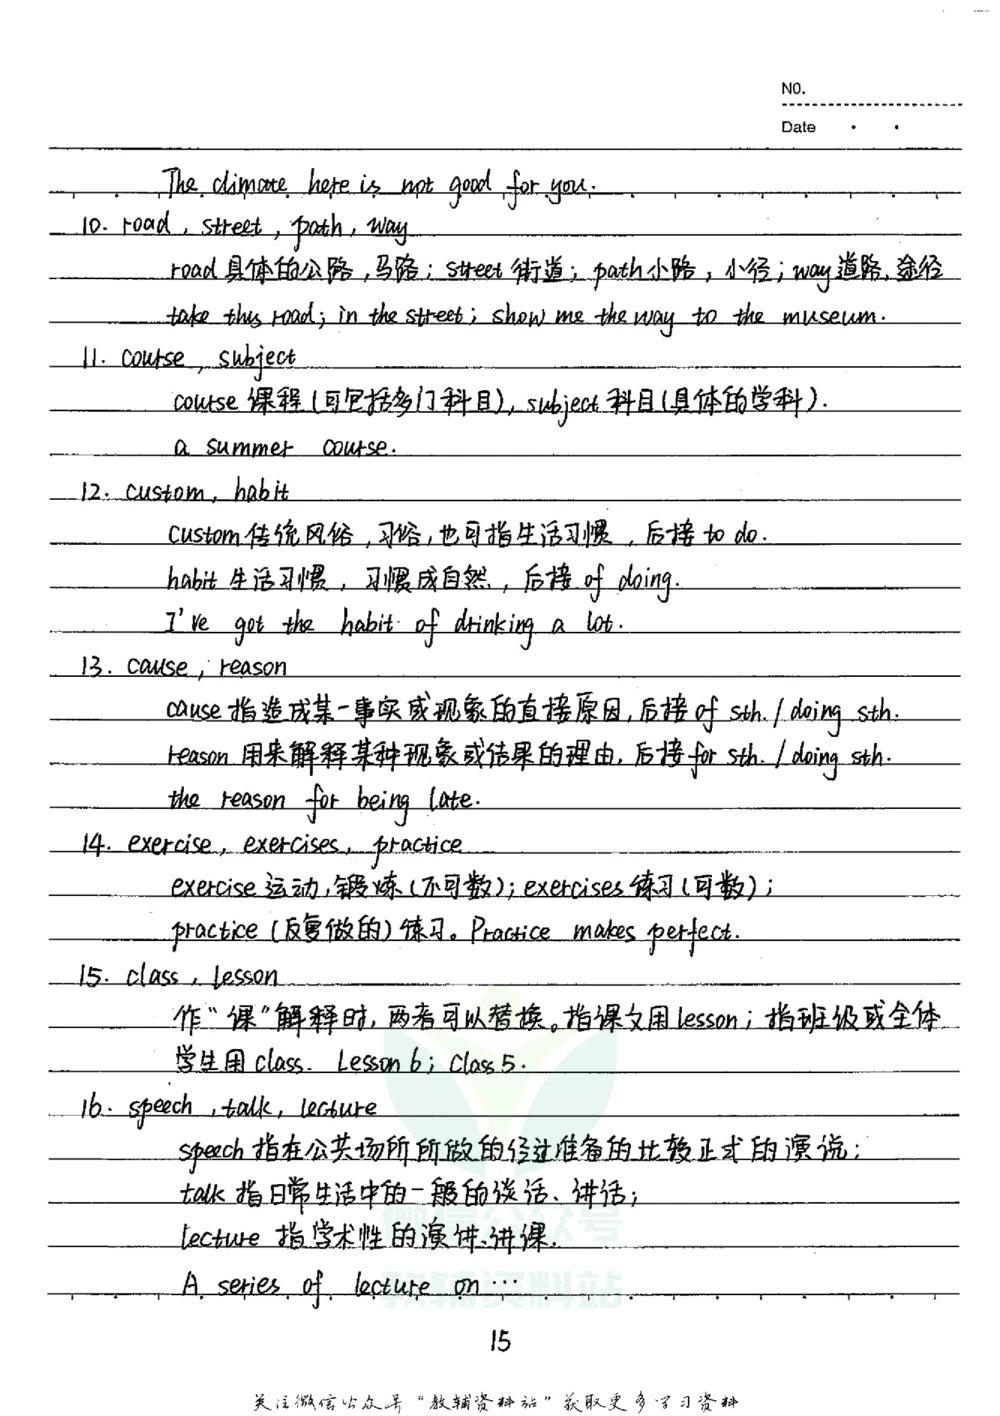 NO.
Date
The climate here is not good for you.
10. road, street, path, way
road 具体的公路,马路; street 街道; path 小路,小径; way 道路,途径
take this road; in the street; show me the way to the museum.
11. course, subject
course 课程(可包括多门科目), subject 科目(具体的学科).
a summer course.
12. custom, habit
custom 传统风俗,习俗,也可指生活习惯,后接 to do.
habit 生活习惯,习惯成自然,后接 of doing.
I've got the habit of drinking a lot.
13. cause, reason
cause 指造成某一事实或现象的直接原因,后接 of sth. / doing sth.
reason 用来解释某种现象或结果的理由,后接 for sth. / doing sth.
the reason for being late.
14. exercise, exercises, practice
exercise 运动,锻炼(不可数); exercises 练习(可数);
practice (反复做的)练习。Practice makes perfect.
15. class, lesson
作“课”解释时,两者可以替换。指课文用 lesson; 指班级或全体
学生用 class. Lesson 6; Class 5.
16. speech, talk, lecture
speech 指在公共场所所做的经过准备的比较正式的演说;
talk 指日常生活中的一般的谈话、讲话;
lecture 指学术性的演讲、讲课.
微信公众号
A series of lecture on …
教辅资料站
15
关注微信公众号“教辅资料站”获取更多学习资料